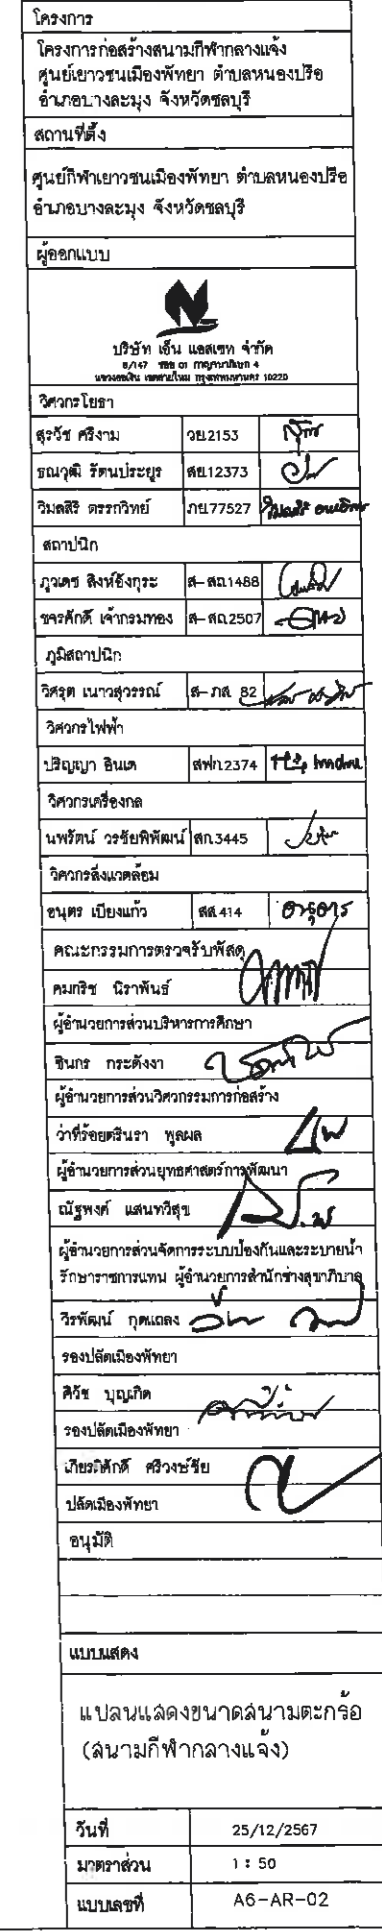 โครงการ
โครงการก่อสร้างสนามกีฬากลางแจ้ง
ศูนย์เยาวชนเมืองพัทยา ตำบลหนองปรือ
อำเภอบางละมุง จังหวัดชลบุรี
สถานที่ตั้ง
ศูนย์กีฬาเยาวชนเมืองพัทยา ตำบลหนองปรือ
อำเภอบางละมุง จังหวัดชลบุรี
ผู้ออกแบบ
บริษัท เอ็น แอสเซท จำกัด
8/147 ซอย 01 กาญจนาภิเษก 4
แขวงออเงิน เขตสายไหม กรุงเทพมหานคร 10220
วิศวกรโยธา
สุรวัช ศรีงาม วย.2153
ธณวุฒิ รัตนประยูร สย.12373
วิมลสิริ ตรรกวิทย์ ภย.77527
สถาปนิก
ภูวเดช สิงห์อังกุระ ส-สถ.1488
ขจรศักดิ์ เจ้ากรมทอง ส-สถ.2507
ภูมิสถาปนิก
วิศรุต เนาวสุวรรณ์ ส-ภส. 82
วิศวกรไฟฟ้า
ปริญญา อินเด สฟก.2374
วิศวกรเครื่องกล
นพรัตน์ วรชัยพิพัฒน์ สก.3445
วิศวกรสิ่งแวดล้อม
อนุตร เบียงแก้ว สส.414
คณะกรรมการตรวจรับพัสดุ
คมกริช นิราพันธ์
ผู้อำนวยการส่วนบริหารการศึกษา
ชินกร กระดังงา
ผู้อำนวยการส่วนวิศวกรรมการก่อสร้าง
ว่าที่ร้อยตรีนรา พูลผล
ผู้อำนวยการส่วนยุทธศาสตร์การพัฒนา
ณัฐพงศ์ แสนทวีสุข
ผู้อำนวยการส่วนจัดการระบบป้องกันและระบายน้ำ
รักษาราชการแทน ผู้อำนวยการสำนักช่างสุขาภิบาล
วิรพัฒน์ กุดแถลง
รองปลัดเมืองพัทยา
ศิวัช บุญเกิด
รองปลัดเมืองพัทยา
เกียรติศักดิ์ ศรีวงษ์ชัย
ปลัดเมืองพัทยา
อนุมัติ
แบบแสดง
แปลนแสดงขนาดสนามตะกร้อ
(สนามกีฬากลางแจ้ง)
วันที่ 25/12/2567
มาตราส่วน 1 : 50
แบบเลขที่ A6-AR-02